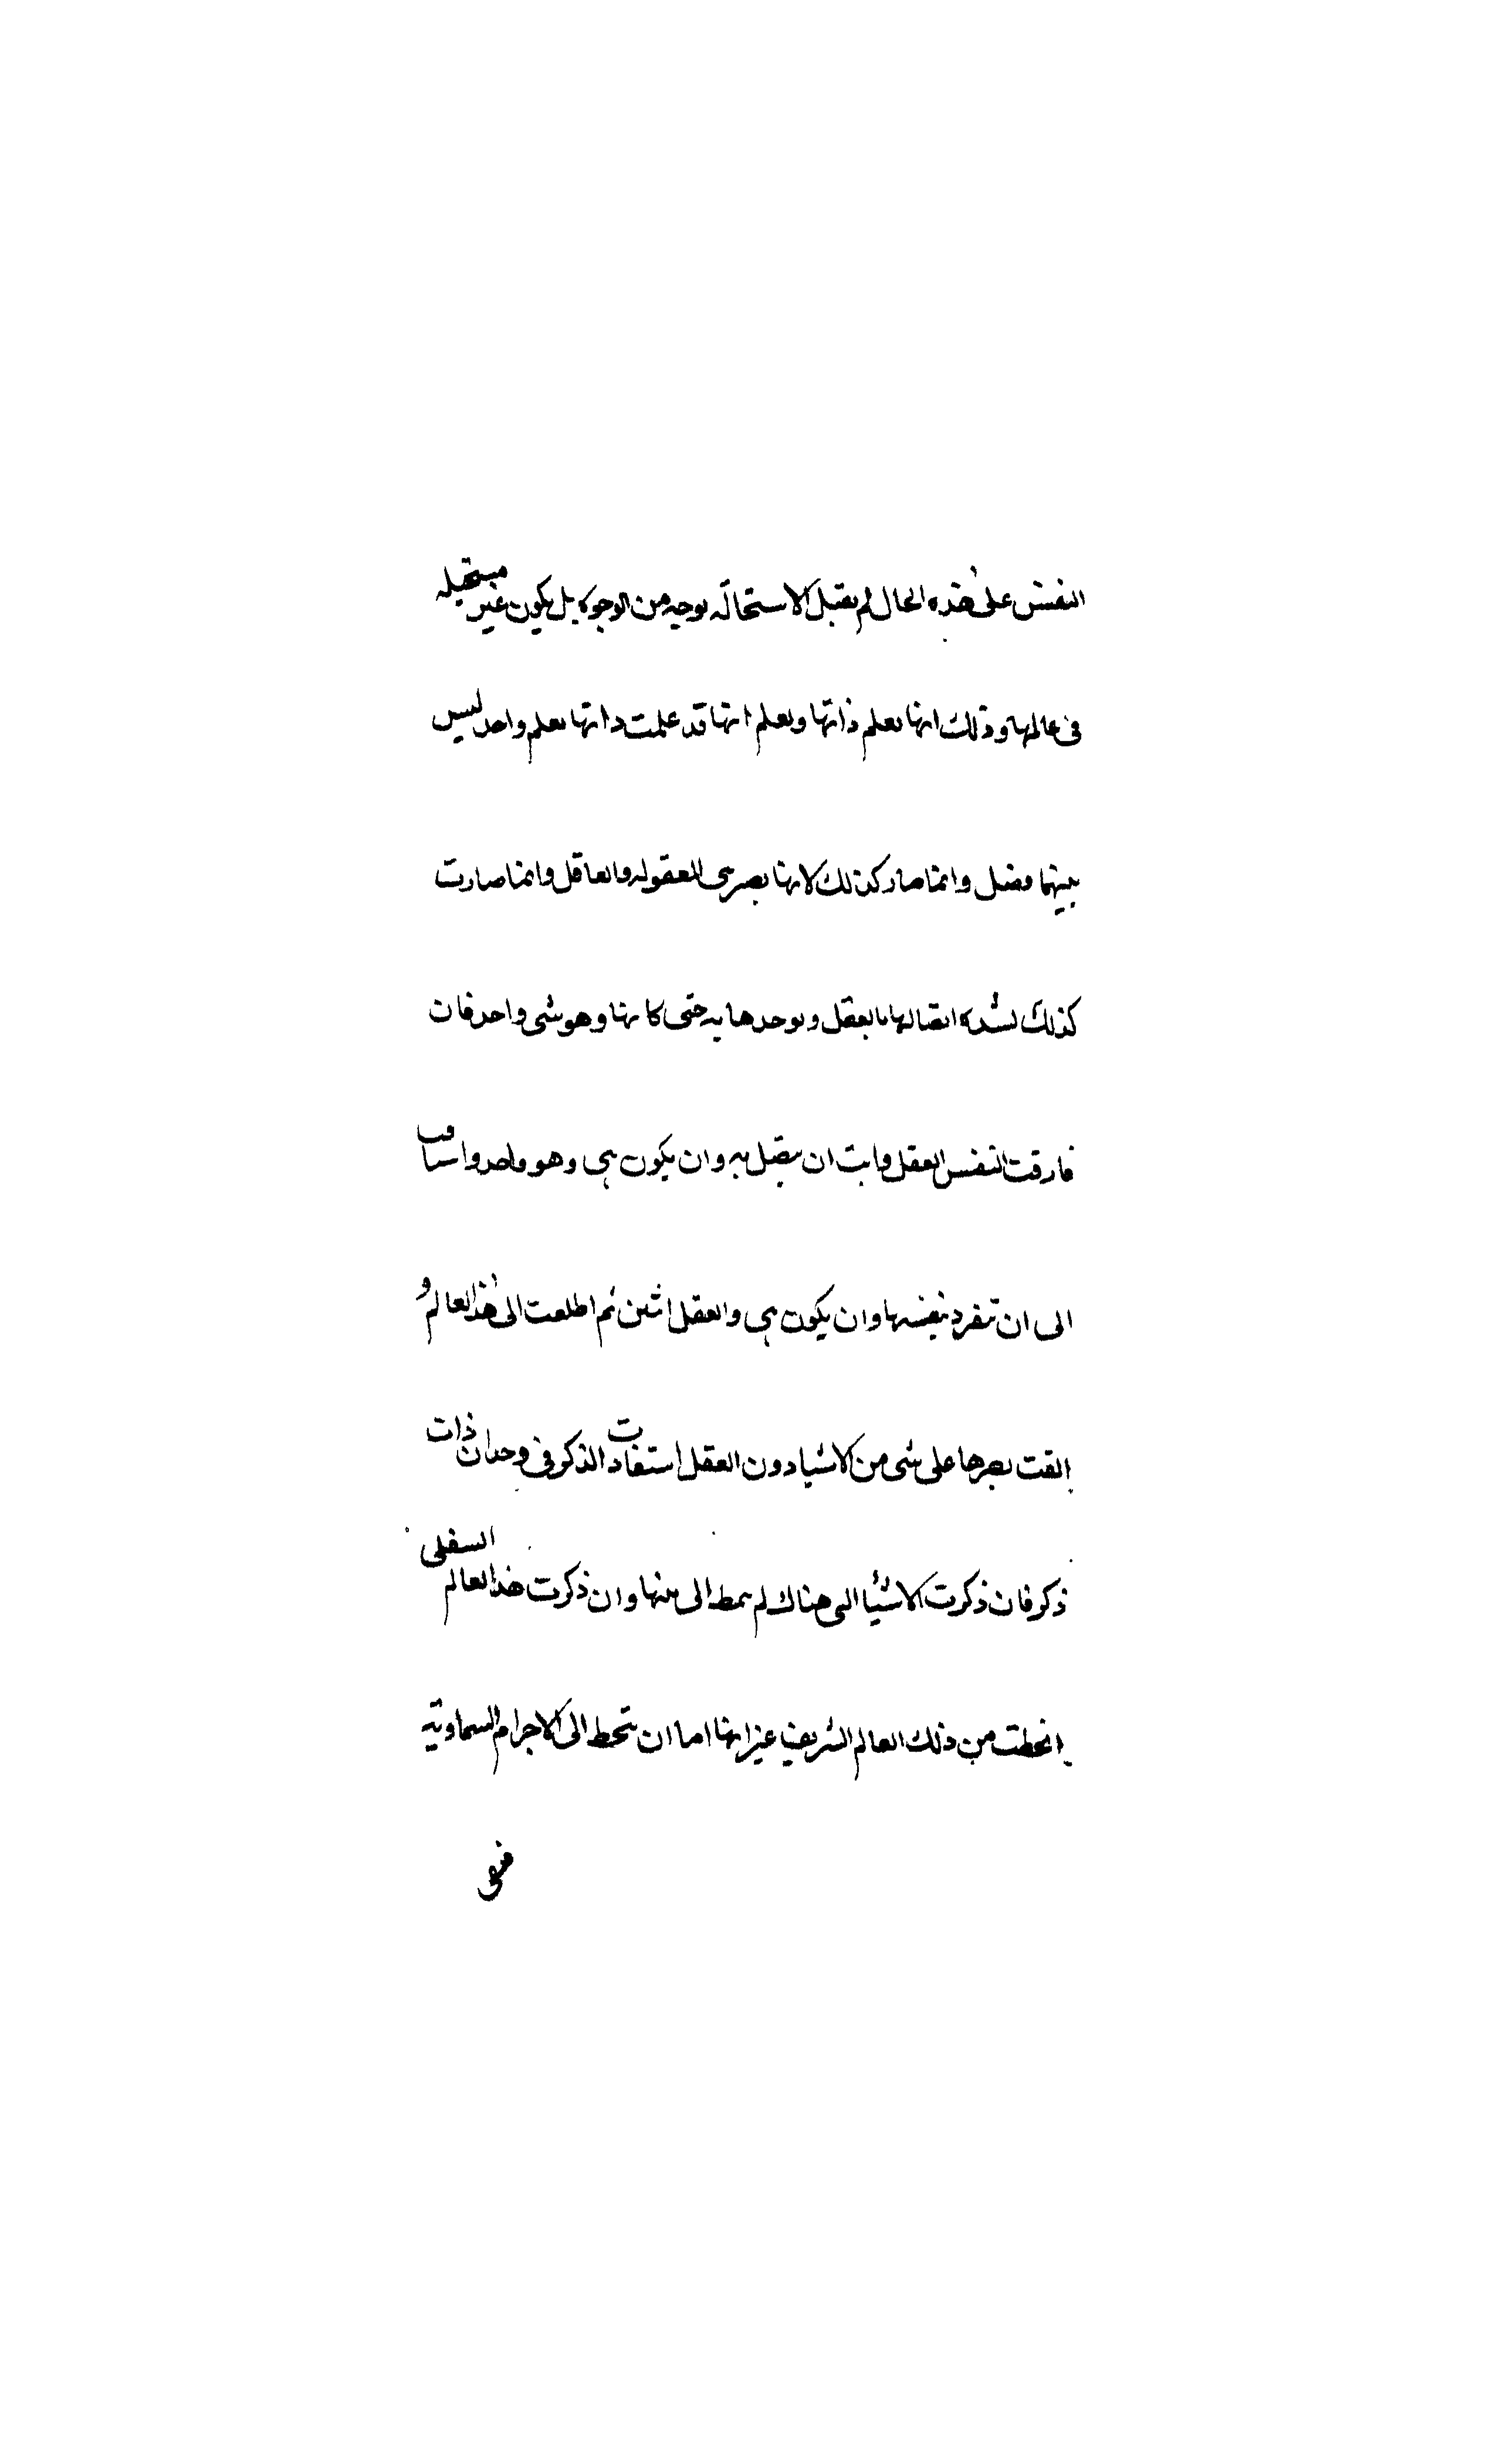 النفس على هذه الحال لم يقبل الاستحاله بوجه من الوجوه بل يكون غير مستحيله
فى عالمها وذلك انها يعلم ذاتها ويعلم انها قد علمت داتها بعلم واحد ليس
بينهما فصل وانما صار كذلك لانها يصير هى المعقوله والعاقل وانما صارت
كذلك لشده اتصالها بالعقل وتوحدها به حتى كانها وهو شى واحد فان
فارقت النفس العقل وابت ان يتصل به وان يكون هى وهو واحد واشتاقت
الى ان تنفرد بنفسها وان يكون هى والعقل اثنين ثم اطلعت الى هذا العالم و
القت بصرها على شى من الاشيا دون العقل استفادت الذكر فى وحدان ذات
ذكر فان ذكرت الاشيا التى هناك لم ينحط الى هنها وان ذكرت هذا العالم السفلى
انحطت من ذلك العالم الشريف غير انها اما ان تنحط الى الاجرام السماوية
فتبقى